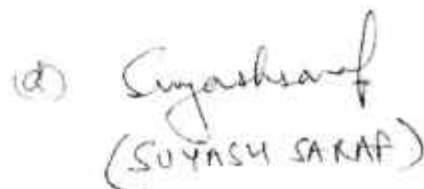 (d) Suyashsaraf
(SUYASH SARAF)